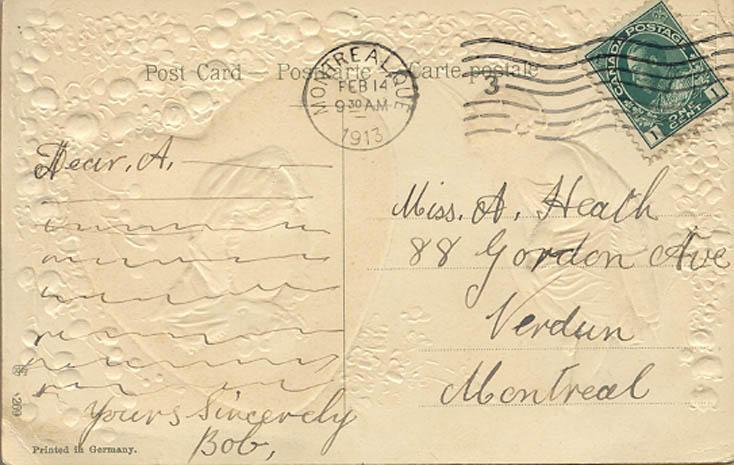 Post Card – Postkarte – Carte postale
MONTREAL. QUE
FEB 14
9 30 AM
1913
3
CANADA POSTAGE
1 ONE CENT 1
Dear, A,
Yours Sincerely
Bob,
Miss. A. Heath
88 Gordon Ave
Verdun
Montreal
Printed in Germany.